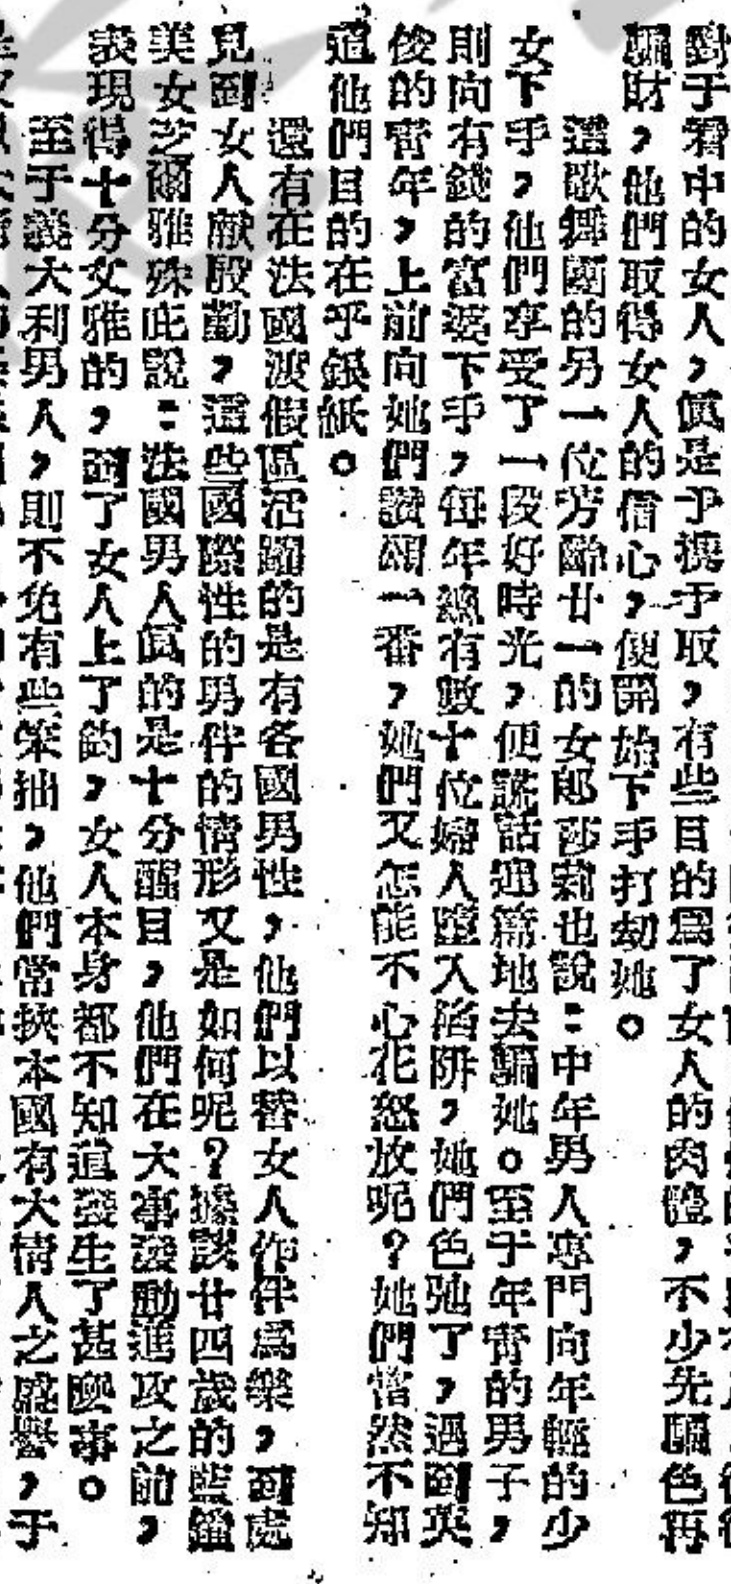 對于看中的女人，眞是予攫予取，有些目的爲了女人的肉體，不少先騙色再
騙財，他們取得女人的信心，便開始下手打刧她。
這歌舞團的另一位芳齡廿一的女郎莎莉也說：中年男人專門向年輕的少
女下手，他們享受了一段好時光，便謊話連篇地去騙她。至于年青的男子，
則向有錢的富婆下手，每年總有數十位婦人墮入陷阱，她們色弛了，遇到英
俊的青年，上前向她們讚頌一番，她們又怎能不心花怒放呢？她們當然不知
道他們目的在乎銀紙。
還有在法國渡假區活躍的是有各國男性，他們以替女人作伴爲樂，到處
見到女人献殷勤，這些國際性的男伴的情形又是如何呢？據該廿四歲的藍鐘
美女芝爾雅殊此說：法國男人眞的是十分醒目，他們在大事發動進攻之前，
表現得十分文雅的，到了女人上了鈎，女人本身都不知道發生了甚麽事。
至于義大利男人，則不免有些笨拙，他們常挾本國有大情人之盛譽，于